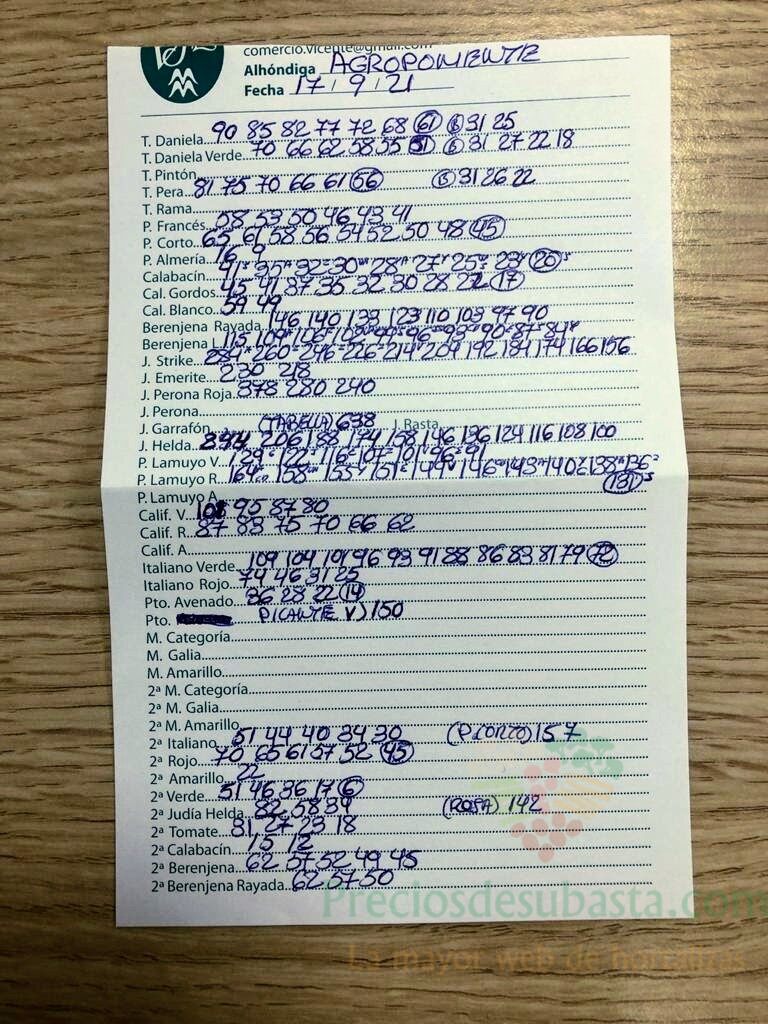 comercio.vicente@gmail.com
Alhóndiga AGROPONIENTE
Fecha 17/9/21
T. Daniela 90 85 82 77 72 68 61 (6) 31 25
T. Daniela Verde 70 66 62 58 55 51 (6) 31 27 22 18
T. Pintón
T. Pera 81 75 70 66 61 56 (6) 31 26 22
T. Rama
P. Francés 58 53 50 46 43 41
P. Corto 65 61 58 56 54 52 50 48 45
P. Almería 16 9
Calabacín 41 35 32 30 28 27 25 23 20
Cal. Gordos 45 41 37 35 32 30 28 22 17
Cal. Blanco 59 49
Berenjena Rayada 146 140 133 123 110 103 97 90
Berenjena L 115 109 106 102 99 96 93 90 87 84
J. Strike 284 260 246 226 214 204 192 184 174 166 156
J. Emerite 230 218
J. Perona Roja 378 280 240
J. Perona
J. Garrafón (TABELLA) 638 J. Rasta
J. Helda 244 206 188 174 158 146 136 124 116 108 100
P. Lamuyo V. 129 122 116 107 101 96 91
P. Lamuyo R. 164 158 155 151 149 146 143 140 138 136
131
P. Lamuyo A
Calif. V. 95 87 80
Calif. R. 87 83 75 70 66 62
Calif. A
Italiano Verde 109 104 101 96 93 91 88 86 83 81 79 72
Italiano Rojo 74 46 31 25
Pto. Avenado 36 28 22 14
Pto. PICANTE V) 150
M. Categoría
M. Galia
M. Amarillo
2ª M. Categoría
2ª M. Galia
2ª M. Amarillo
2ª Italiano 51 44 40 34 30 (P CORTO) 15 7
2ª Rojo 70 65 61 57 52 45
2ª Amarillo 22
2ª Verde 51 46 36 17 6
2ª Judía Helda 82 58 39 (ROJA) 142
2ª Tomate 31 27 23 18
2ª Calabacín 15 12
2ª Berenjena 62 57 52 49 45
2ª Berenjena Rayada 62 57 50
Preciosdesubasta.com
La mayor web de hortalizas